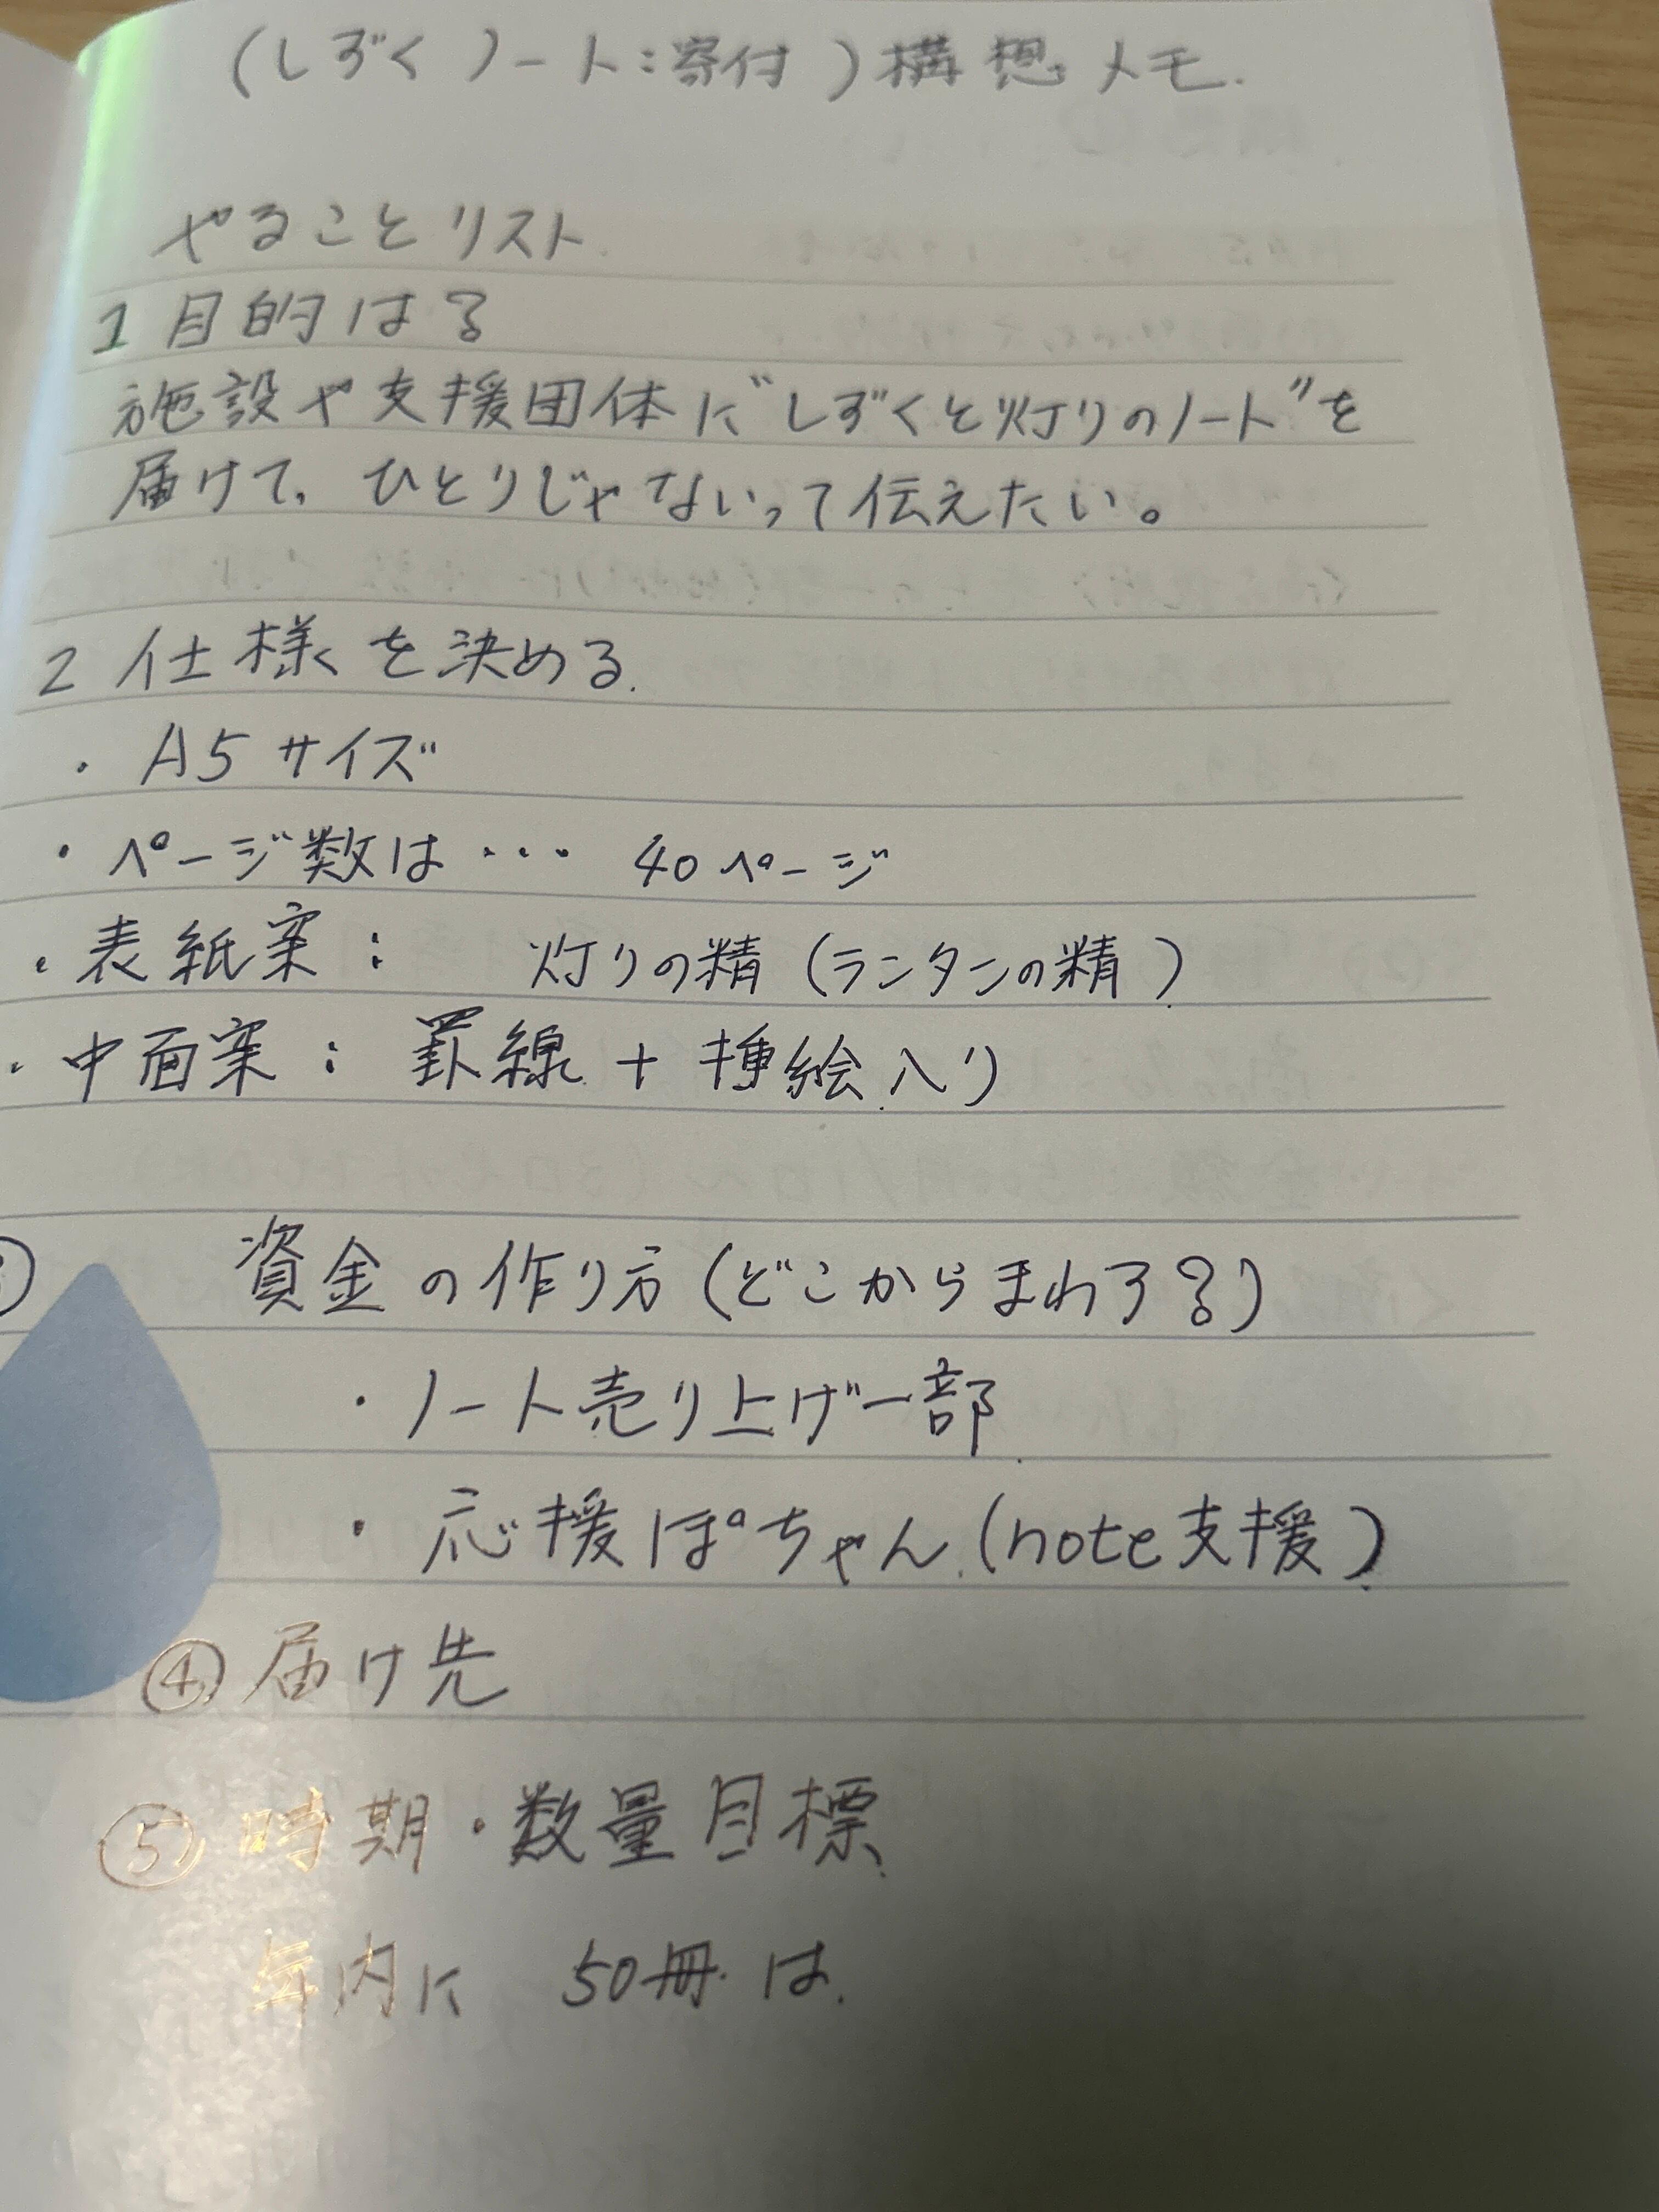 (しずくノート:寄付)構想メモ.
やることリスト.
1 目的は?
施設や支援団体に"しずくと灯りのノート"を
届けて、ひとりじゃないって伝えたい。
2 仕様を決める.
・A5サイズ
・ページ数は・・・ 40ページ
・表紙案: 灯りの精(ランタンの精)
・中面案:罫線+挿絵入り
資金の作り方(どこからまわす?)
・ノート売り上げ一部
・応援ぽちゃん(note支援)
④ 届け先
⑤ 時期・数量目標
年内に 50冊は.